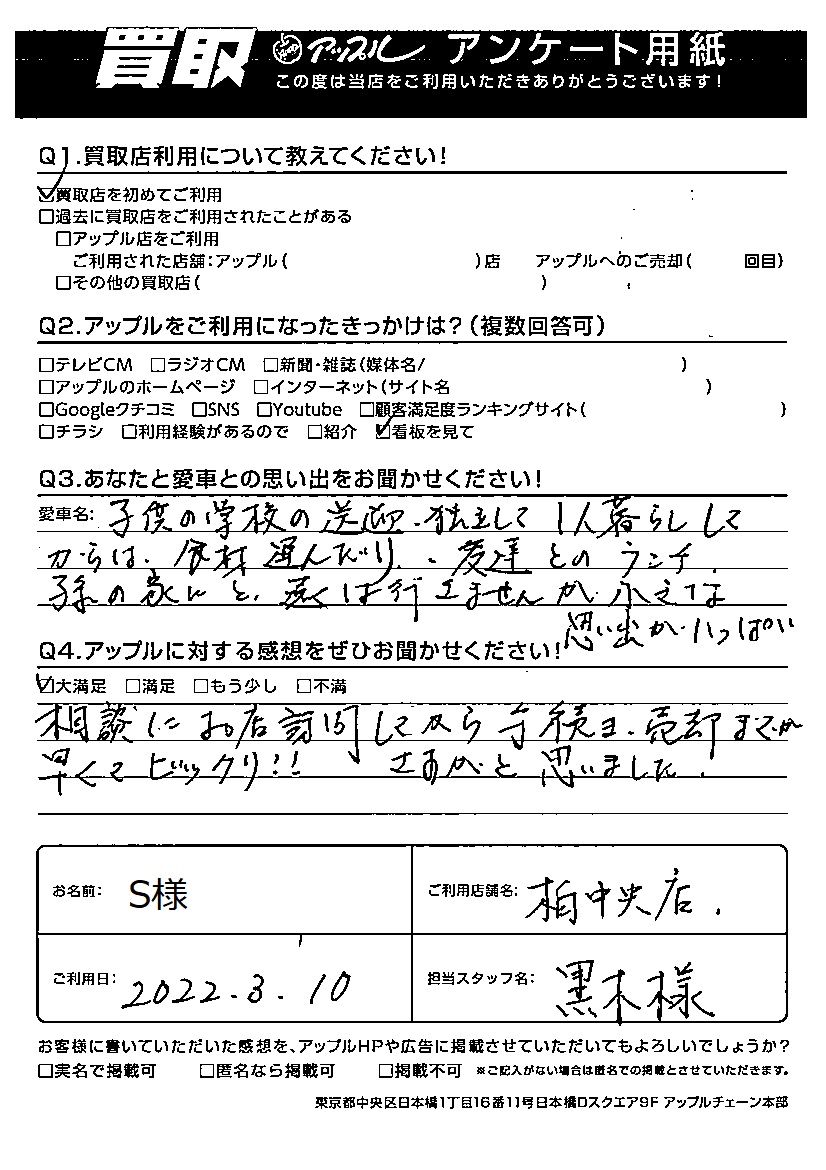 買取 アップル アンケート用紙
この度は当店をご利用いただきありがとうございます!
Q1.買取店利用について教えてください!
☑買取店を初めてご利用
□過去に買取店をご利用されたことがある
□アップル店をご利用
ご利用された店舗:アップル( )店 アップルへのご売却( 回目)
□その他の買取店( )
Q2.アップルをご利用になったきっかけは?(複数回答可)
□テレビCM □ラジオCM □新聞・雑誌(媒体名/ )
□アップルのホームページ □インターネット(サイト名 )
□Googleクチコミ □SNS □Youtube □顧客満足度ランキングサイト( )
□チラシ □利用経験があるので □紹介 ☑看板を見て
Q3.あなたと愛車との思い出をお聞かせください!
愛車名: 子供の学校の送迎、独立して1人暮らしして
からは、食材選んだり、友達とのランチ、
孫の家にと、遠くは行けませんが、小さては
思い出がいっぱい
Q4.アップルに対する感想をぜひお聞かせください!
☑大満足 □満足 □もう少し □不満
相談にお店訪問してから手続き、売却までが
早くてビックリ!! さすがと思いました。
お名前: S様
ご利用店舗名: 柏中央店.
ご利用日: 2022.3.10
担当スタッフ名: 黒木様
お客様に書いていただいた感想を、アップルHPや広告に掲載させていただいてもよろしいでしょうか?
□実名で掲載可 □匿名なら掲載可 □掲載不可 ※ご記入がない場合は匿名での掲載とさせていただきます。
東京都中央区日本橋1丁目16番11号日本橋Dスクエア9F アップルチェーン本部